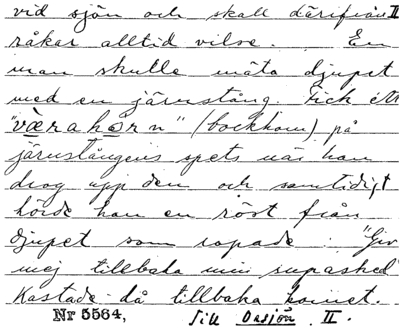 vid sjön och skall därifrån II
råkar alltid vilse. En
man skulle mäta djupet
med en järnstång. Fick ett
"værahårn" (bockhorn) på
järnstångens spets när han
drog upp den och samtidigt
hörde han en röst från
djupet som ropade: "Giv
mej tillbaka min supasked"
Kastade då tillbaka hornet.
Nr 5564, Till Oasjön II.